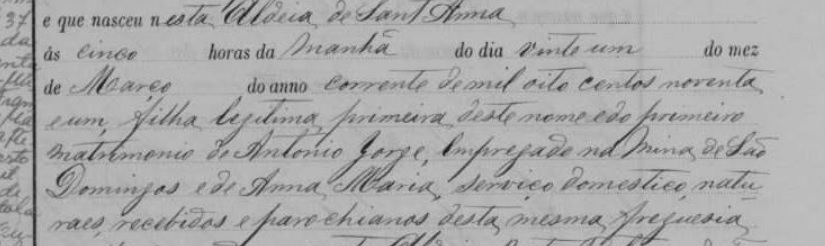 e que nasceu nesta Aldeia de Sant'Anna
ás cinco horas da manhã do dia vinte um do mez
de Março do anno corrente de mil oito centos noventa
e um, filha legitima, primeira deste nome e do primeiro
matrimonio de Antonio Jorge, Empregado na Mina de São
Domingos e de Anna Maria, serviço domestico, natu
raes, recebidos e parochianos desta mesma freguesia